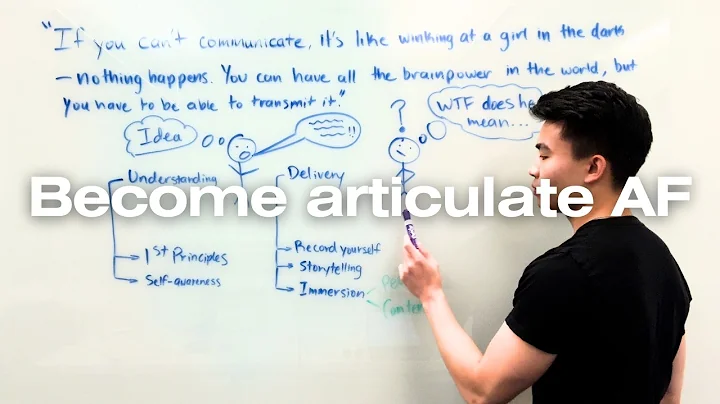 "If you can't communicate, it's like winking at a girl in the dark
—nothing happens. You can have all the brainpower in the world, but
you have to be able to transmit it."
Idea
!!
?
WTF does he
mean...
Understanding
Delivery
Become articulate AF
1st Principles
Self-awareness
Record yourself
Storytelling
Immersion